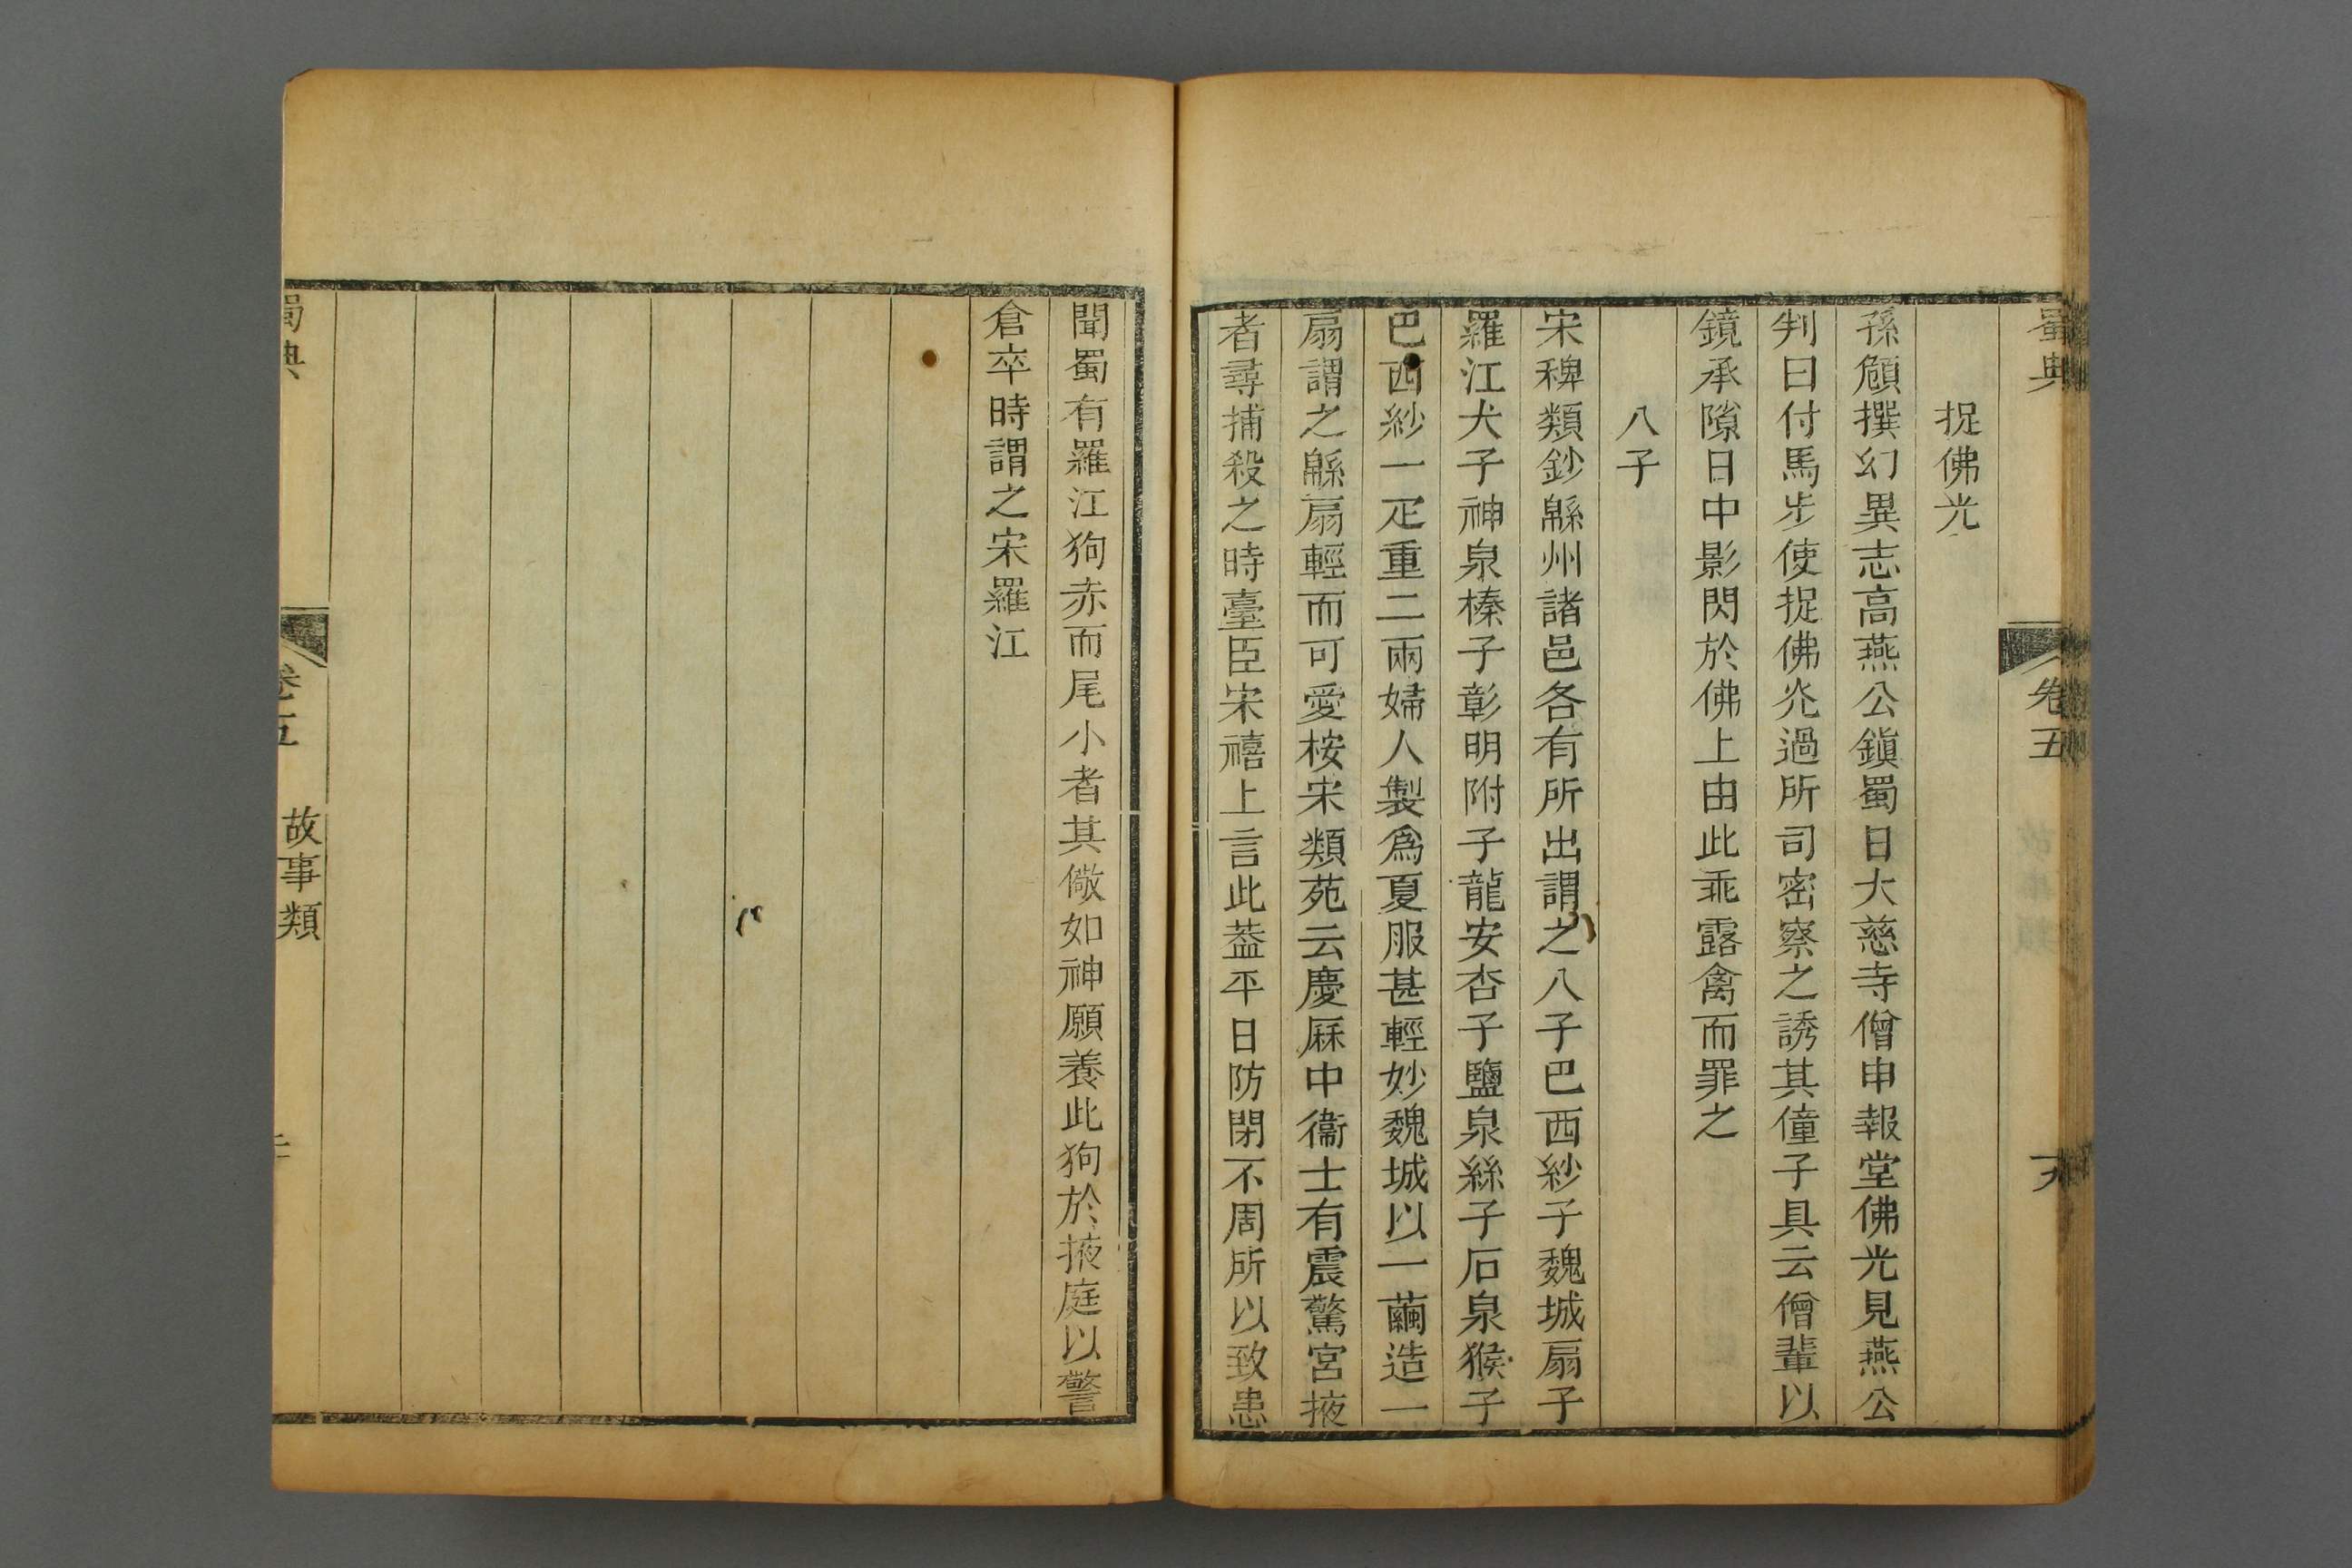 蜀典 卷五
捉佛光
孫頠撰幻異志高燕公鎮蜀日大慈寺僧申報堂佛光見燕公
判曰付馬步使捉佛灮過所司密察之誘其僮子具云僧輩以
鏡承隙日中影閃於佛上由此乖露禽而罪之
八子
宋稗類鈔緜州諸邑各有所出謂之八子巴西紗子魏城扇子
羅江犬子神泉榛子彰明附子龍安杏子鹽泉絲子石泉猴子
巴西紗一疋重二兩婦人製爲夏服甚輕妙魏城以一繭造一
扇謂之緜扇輕而可愛桉宋類苑云慶厤中衞士有震驚宮掖
者尋捕殺之時臺臣宋禧上言此葢平日防閉不周所以致患
聞蜀有羅江狗赤而尾小者其儆如神願養此狗於掖庭以警
倉卒時謂之宋羅江
蜀典 卷五 故事類